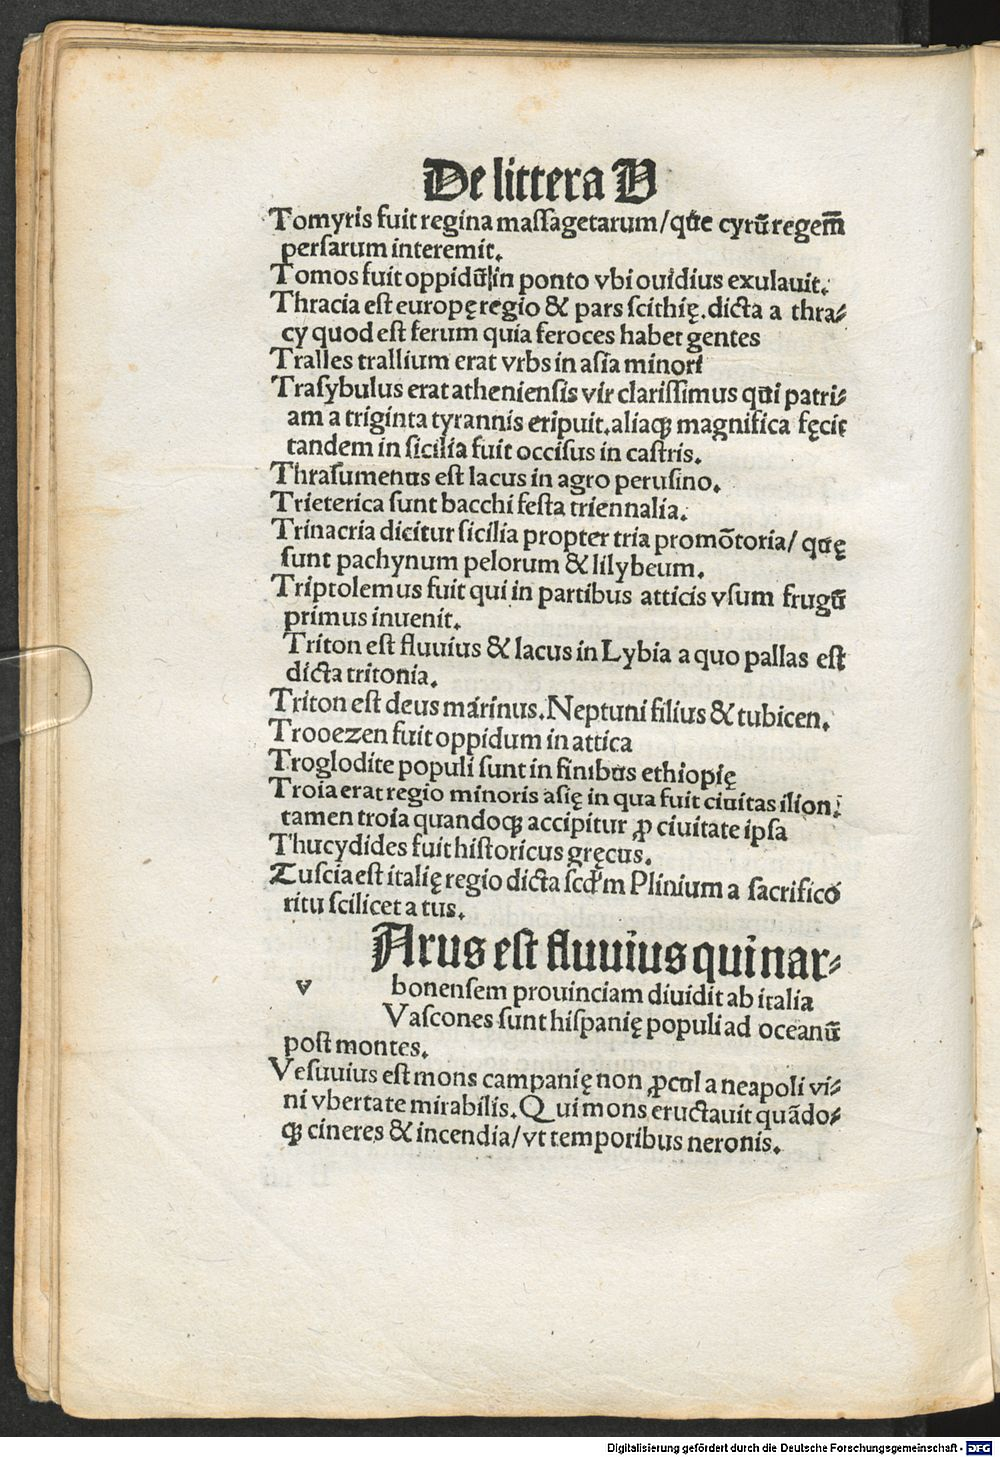 De littera V
Tomyris fuit regina maſſagetarum/ que cyrū regem̄
perſarum interemit.
Tomos fuit oppidū in ponto vbi ouidius exulauit.
Thracia eſt europę regio & pars ſcithię. dicta a thra⸗
cy quod eſt ferum quia feroces habet gentes
Tralles trallium erat vrbs in aſia minori
Traſybulus erat athenienſis vir clariſſimus qui patri⸗
am a triginta tyrannis eripuit. aliaqꝫ magnifica fęcit
tandem in ſicilia fuit occiſus in caſtris.
Thraſumenus eſt lacus in agro peruſino.
Trieterica ſunt bacchi feſta triennalia.
Trinacria dicitur ſicilia propter tria promōtoria/ quę
ſunt pachynum pelorum & lilybeum.
Triptolemus fuit qui in partibus atticis vſum frugū
primus inuenit.
Triton eſt fluuius & lacus in Lybia a quo pallas eſt
dicta tritonia.
Triton eſt deus marinus. Neptuni filius & tubicen.
Trooezen fuit oppidum in attica
Troglodite populi ſunt in finibus ethiopię
Troia erat regio minoris aſię in qua fuit ciuitas ilion:
tamen troia quandoqꝫ accipitur ꝓ ciuitate ipſa
Thucydides fuit hiſtoricus gręcus.
Tuſcia eſt italię regio dicta ſcd'm Plinium a ſacrifico
ritu ſcilicet a tus.
Arus eſt fluuius qui nar⸗
v bonenſem prouinciam diuidit ab italia
Vaſcones ſunt hiſpanię populi ad oceanū
poſt montes.
Veſuuius eſt mons campanię non ꝓcul a neapoli vi⸗
ni vbertate mirabilis. Qui mons eructauit quādo⸗
qꝫ cineres & incendia/ vt temporibus neronis.
Digitalisierung gefördert durch die Deutsche Forschungsgemeinschaft - DFG